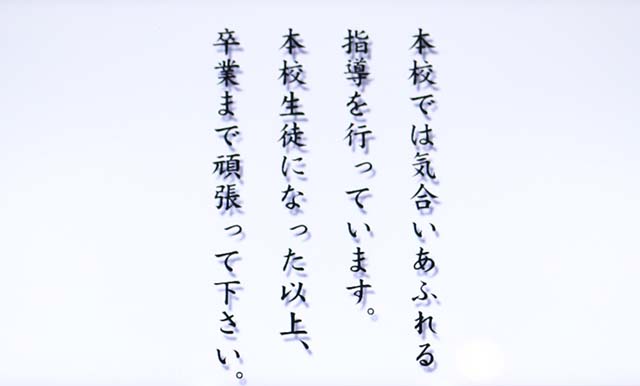 本校では気合いあふれる
指導を行っています。
本校生徒になった以上、
卒業まで頑張って下さい。